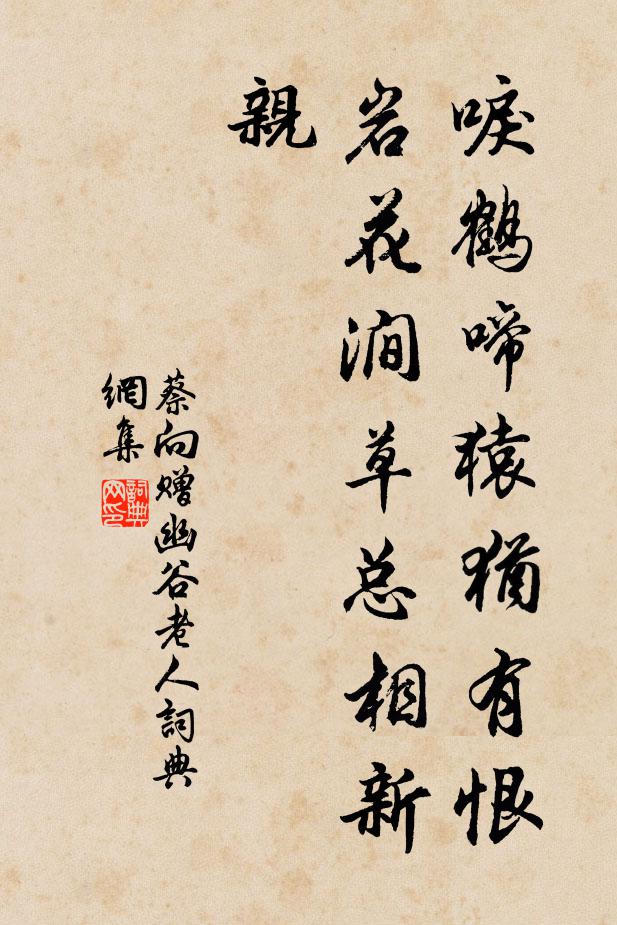 唳鶴啼猿猶有恨
岩花澗草总相新
親
蔡向赠幽谷老人詞典
網集
詞典
网印